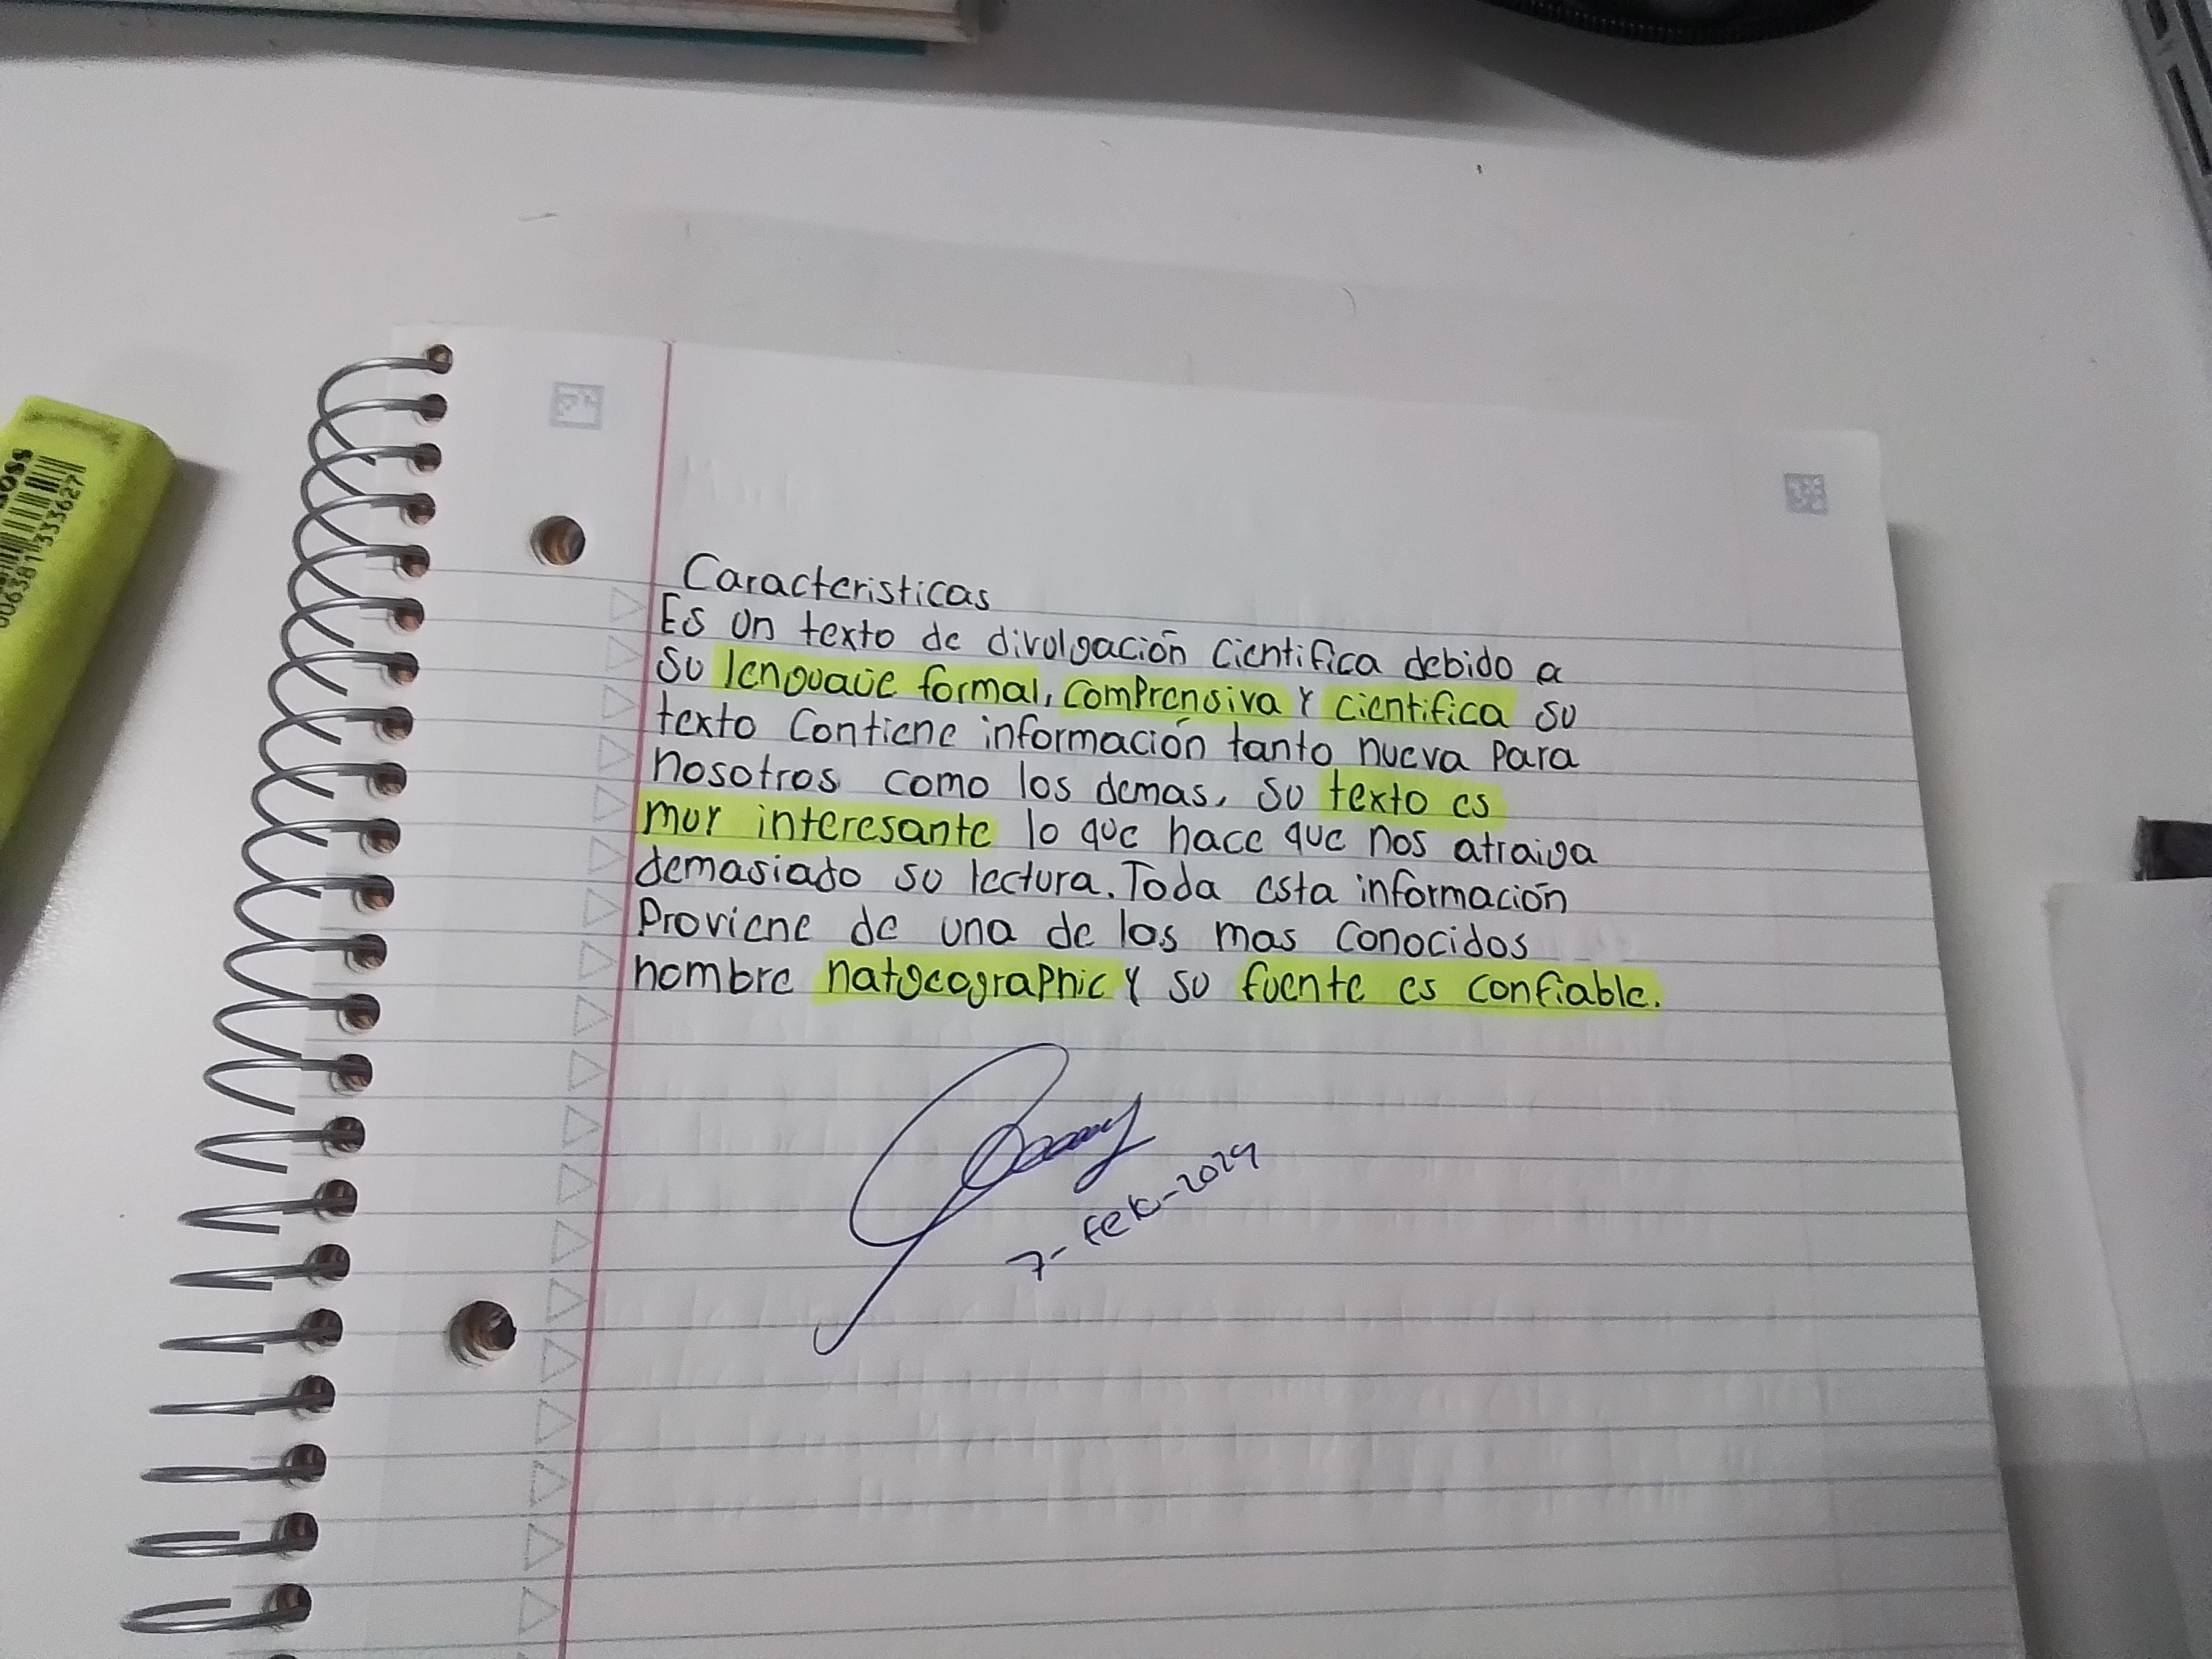 Caracteristicas
Es un texto de divulgación cientifica debido a
su lenguaje formal, comprensiva y cientifica su
texto contiene información tanto nueva para
nosotros como los demas, su texto es
muy interesante lo que hace que nos atraiga
demasiado su lectura. Toda esta información
Proviene de una de los mas conocidos
nombre natgeographic y su fuente es confiable.
7-feb-2024
BOSS
006381 333627